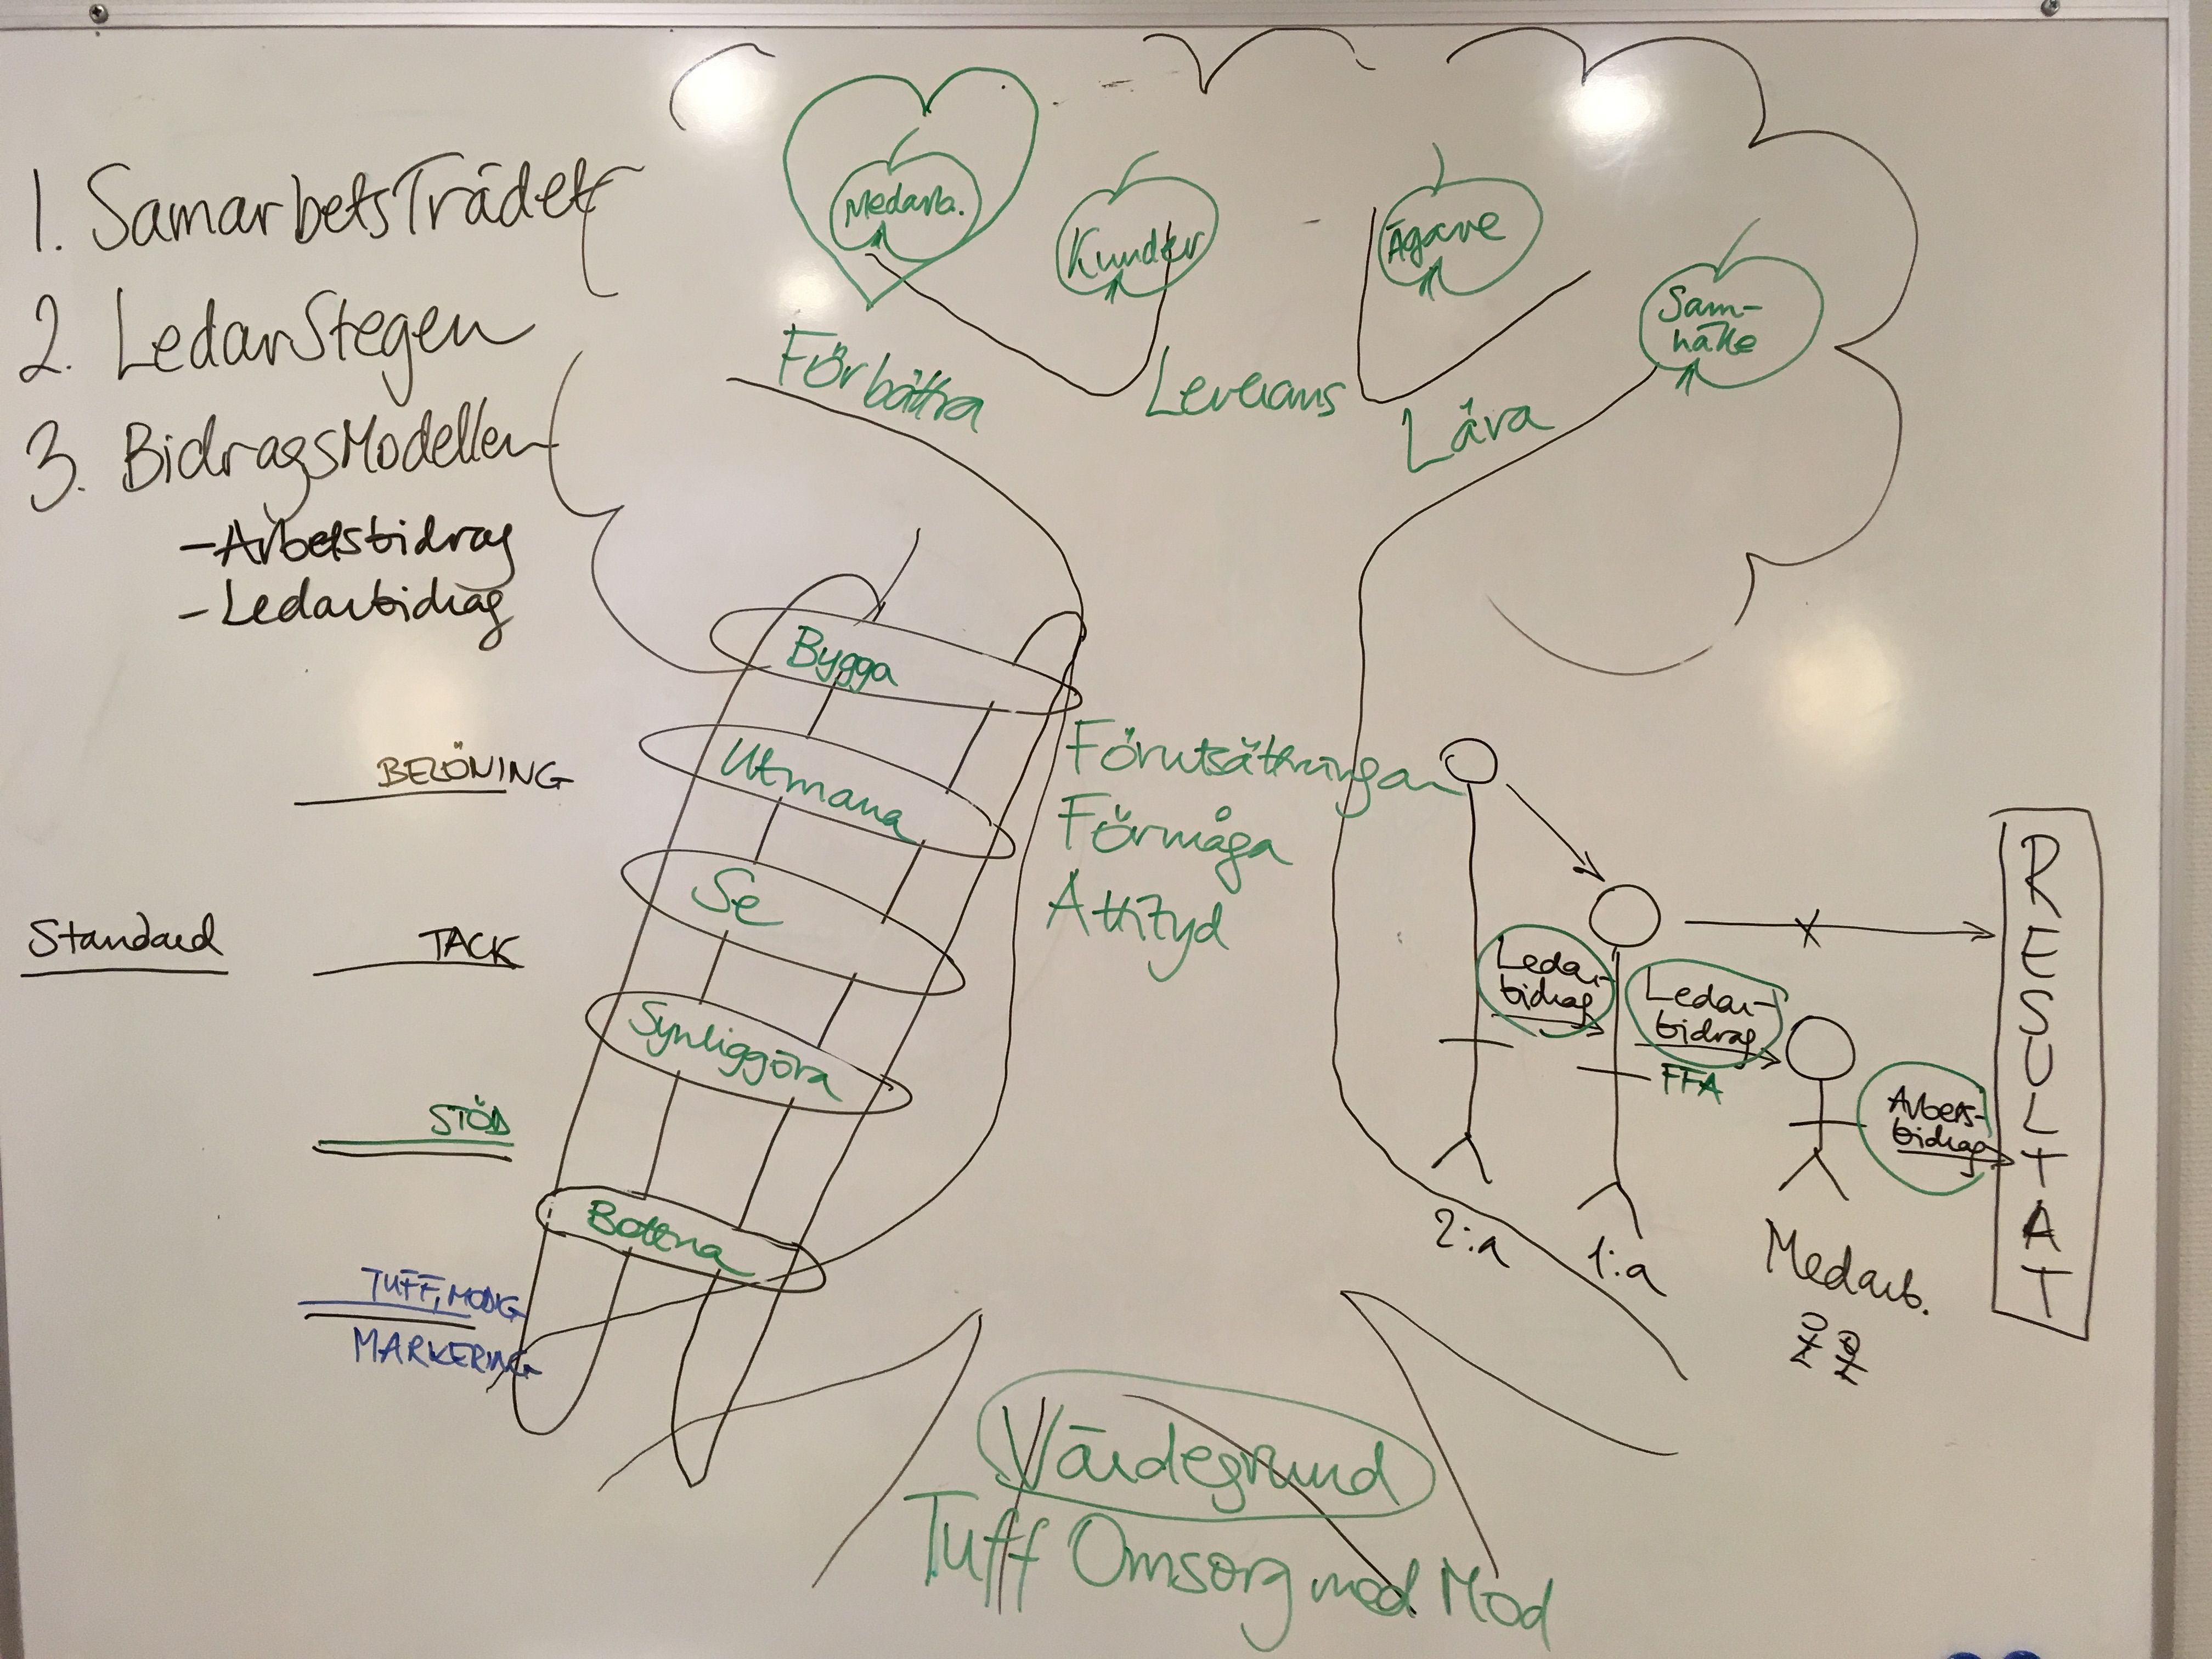 1. SamarbetsTrädet
2. LedarStegen
3. BidragsModellen
- Arbetsbidrag
- Ledarbidrag
Medarb.
Kunder
Ägare
Sam-
hälle
Förbättra
Leverans
Lära
Bygga
Utmana
Se
Synliggöra
Bottna
BELÖNING
Standard
TACK
STÖD
TUFF, MODIG
MARKERING
Förutsättningar
Förmåga
Attityd
Ledar-
bidrag
Ledar-
bidrag
FFA
Arbets-
bidrag
2:a
1:a
Medarb.
RESULTAT
Värdegrund
Tuff Omsorg med Mod